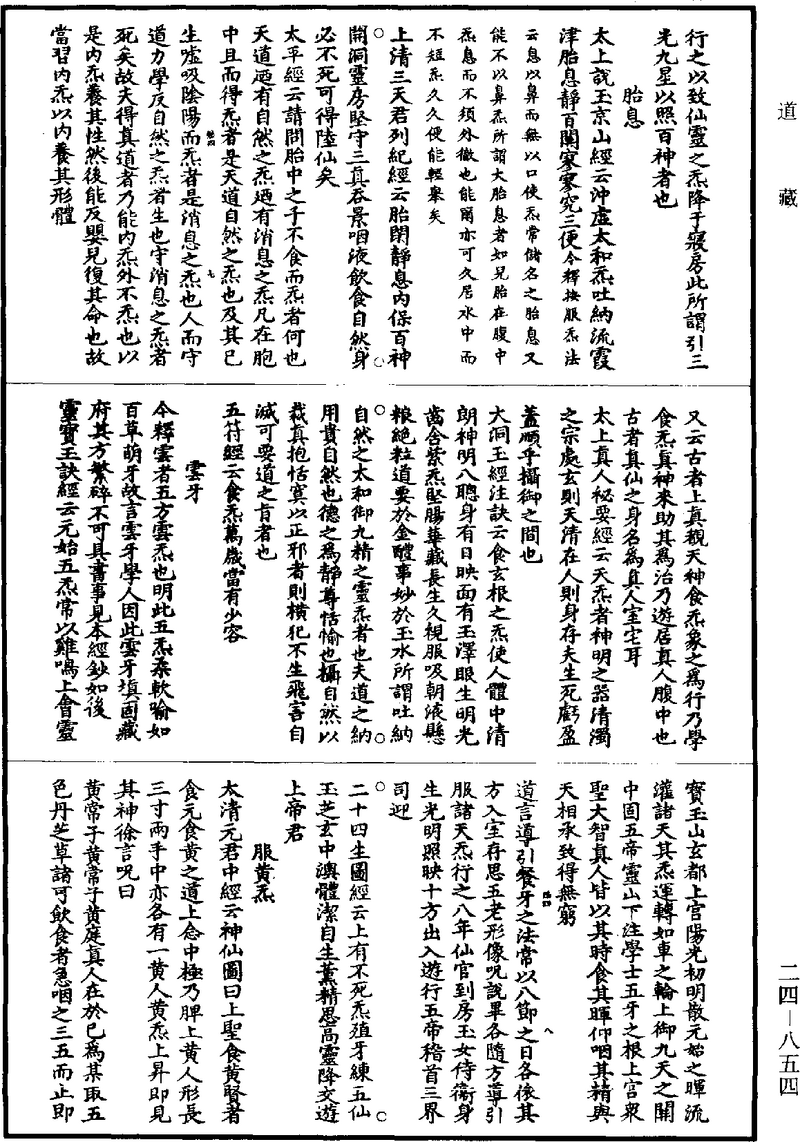 道藏
行之以致仙靈之炁降于寢房此所謂引三
光九星以照百神者也
胎息
太上說玉京山經云沖虛太和炁吐納流霞
津胎息靜百關寥寥究三便今釋按服炁法
云息以鼻而無以口使炁常儲名之胎息又
能不以鼻炁所謂大胎息者如兒胎在腹中
炁息而不須外徹也能爾亦可久居水中而
不短炁久久便能輕舉矣
上清三天君列紀經云胎閉靜息內保百神
開洞靈房堅守三真吞景咽液飲食自然身
必不死可得陸仙矣
太平經云請問胎中之子不食而炁者何也
天道迺有自然之炁迺有消息之炁凡在胞
中且而得炁者是天道自然之炁也及其已
生噓吸陰陽而炁者是消息之炁也人而守
道力學反自然之炁者生也守消息之炁者
死矣故夫得真道者乃能內炁外不炁也以
是內炁養其性然後能反嬰兒復其命也故
當習內炁以內養其形體
又云古者上真覩天神食炁象之為行乃學
食炁真神來助其為治乃遊居真人腹中也
古者真仙之身名為真人室宅耳
太上真人祕要經云天炁者神明之器清濁
之宗處玄則天清在人則身存夫生死虧盈
蓋順乎攝御之間也
大洞玉經注訣云食玄根之炁使人體中清
朗神明八聰身有日映面有玉澤眼生明光
齒含紫炁堅腸華藏長生久視服吸朝液懸
粮絕粒道要於金醴事妙於玉水所謂吐納
自然之太和御九精之靈炁者也夫道之納
用貴自然也德之為靜尊恬愉也攝自然以
裁真抱恬寞以正邪者則橫犯不生飛害自
滅可要道之旨者也
五符經云食炁萬歲當有少容
雲牙
今釋雲者五方雲炁也明此五炁柔軟喻如
百草萌牙故言雲牙學人因此雲牙填固藏
府其方繁碎不可具書事見本經鈔如後
靈寶玉訣經云元始五炁常以雞鳴上會靈
寶玉山玄都上宮陽光初明散元始之暉流
灌諸天其炁運轉如車之輪上御九天之關
中固五帝靈山下注學士五牙之根上宮眾
聖大智真人皆以其時食其暉仰咽其精與
天相承致得無窮
道言導引餐牙之法常以八節之日各依其
方入室存思五老形像呪說畢各隨方導引
服諸天炁行之八年仙官到房玉女侍衛身
生光明照映十方出入遊行五帝稽首三界
司迎
二十四生圖經云上有不死炁殖牙練五仙
玉芝玄中澳體潔自生薰精思高靈降交遊
上帝君
服黃炁
太清元君中經云神仙圖曰上聖食黃賢者
食元食黃之道上念中極乃脾上黃人形長
三寸兩手中亦各有一黃人黃炁上昇即見
其神徐言呪曰
黃常子黃常子黃庭真人在於己為某取五
色丹芝草諸可飲食者急咽之三五而止即
二四—八五四